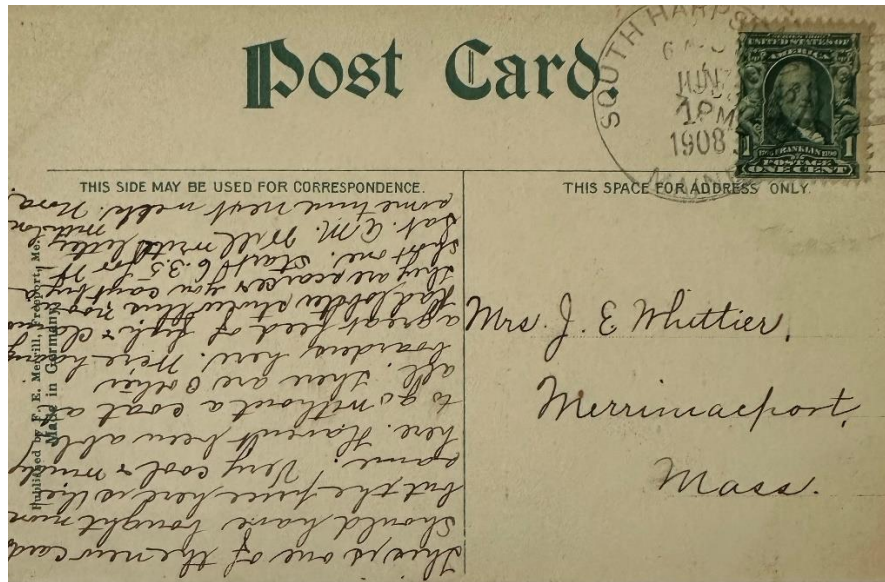 Post Card.
SOUTH HARPS
JUN
1 PM
1908
MAINE
SERIES 1902
UNITED STATES OF
AMERICA
1 1
1706 FRANKLIN 1790
POSTAGE
ONE CENT
THIS SIDE MAY BE USED FOR CORRESPONDENCE.
THIS SPACE FOR ADDRESS ONLY.
Published by F. E. Merrill, Freeport, Me.
Made in Germany
This is one of the new cards
should have bought more
but the price here is the
same. Very cool & windy
here. Haven't been able
to go without a coat at
all. There are 8 other
boarders here. Were having
a great feed of fish & clams
Had lobster stew this noon
they are scarce you can't buy a
short one. Start 6.35 for
Sat. A.M. Will write letter
sometime next week. Nora
Mrs. J. E Whittier,
Merrimacport,
Mass.